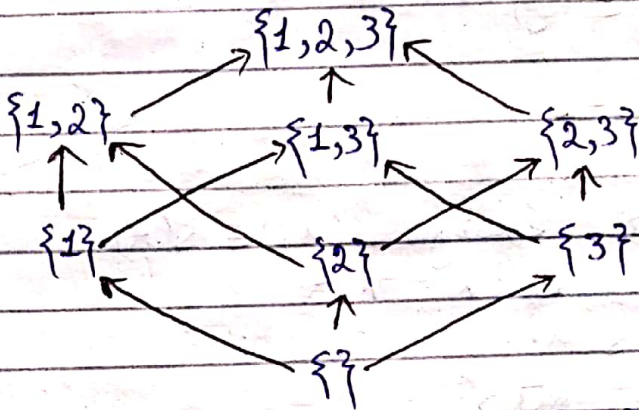 {1,2,3}
{1,2} {1,3} {2,3}
{1} {2} {3}
{}